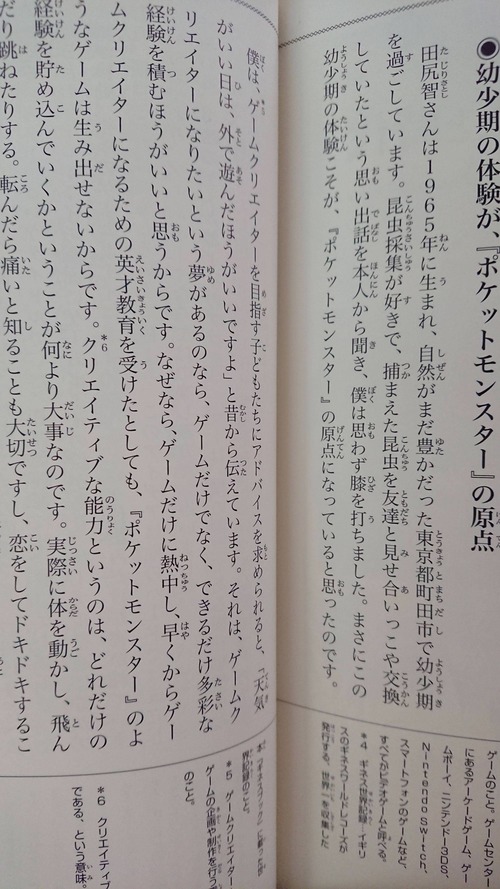 ●幼少期の体験が、『ポケットモンスター』の原点
田尻智さんは1965年に生まれ、自然がまだ豊かだった東京都町田市で幼少期
を過ごしています。昆虫採集が好きで、捕まえた昆虫を友達と見せ合いっこや交換
していたという思い出話を本人から聞き、僕は思わず膝を打ちました。まさにこの
幼少期の体験こそが、『ポケットモンスター』の原点になっていると思ったのです。
ゲームのこと。ゲームセンター
にあるアーケードゲーム、ゲー
ムボーイ、ニンテンドー3DS、
Nintendo Switch、
スマートフォンのゲームなど、
すべてがビデオゲームと呼べる。
*4 ギネス世界記録 イギリ
スのギネスワールドレコーズが
発行する、世界一を収集した
僕は、ゲームクリエイターを目指す子どもたちにアドバイスを求められると、「天気
がいい日は、外で遊んだほうがいいですよ」と昔から伝えています。それは、ゲームク
リエイターになりたいという夢があるのなら、ゲームだけでなく、できるだけ多彩な
経験を積むほうがいいと思うからです。なぜなら、ゲームだけに熱中し、早くからゲー
ムクリエイターになるための英才教育を受けたとしても、『ポケットモンスター』のよ
うなゲームは生み出せないからです。*6クリエイティブな能力というのは、どれだけの
経験を貯め込んでいくかということが何より大事なのです。実際に体を動かし、飛ん
だり跳ねたりする。転んだら痛いと知ることも大切ですし、恋をしてドキドキするこ
界記録のこと。
*5 ゲームクリエイター
ゲームの企画や制作を行う
のこと。
*6 クリエイティブ
である、という意味。